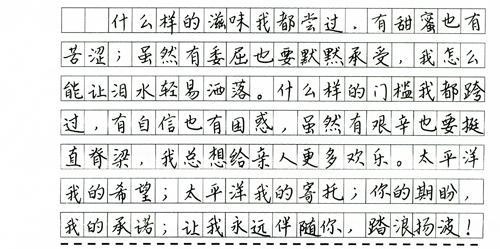 什么样的滋味我都尝过，有甜蜜也有
苦涩；虽然有委屈也要默默承受，我怎么
能让泪水轻易洒落。什么样的门槛我都跨
过，有自信也有困惑，虽然有艰辛也要挺
直脊梁，我总想给亲人更多欢乐。太平洋
我的希望；太平洋我的寄托；你的期盼，
我的承诺；让我永远伴随你，踏浪扬波！